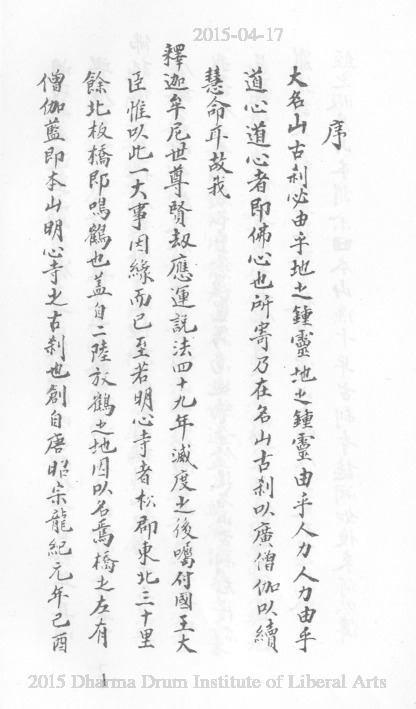 2015-04-17
序
大名山古刹必由乎地之鍾靈地之鍾靈由乎人力人力由乎
道心道心者即佛心也所寄乃在名山古刹以廣僧伽以續
慧命耳故我
釋迦牟尼世尊賢劫應運説法四十九年滅度之後囑付國王大
臣惟以此一大事因緣而已至若明心寺者松郡東北三十里
餘北板橋即鳴鶴也蓋自二陸放鶴之地因以名焉橋之左有
僧伽藍即本山明心寺之古刹也創自唐昭宗龍紀元年己酉
1
2015 Dharma Drum Institute of Liberal Arts